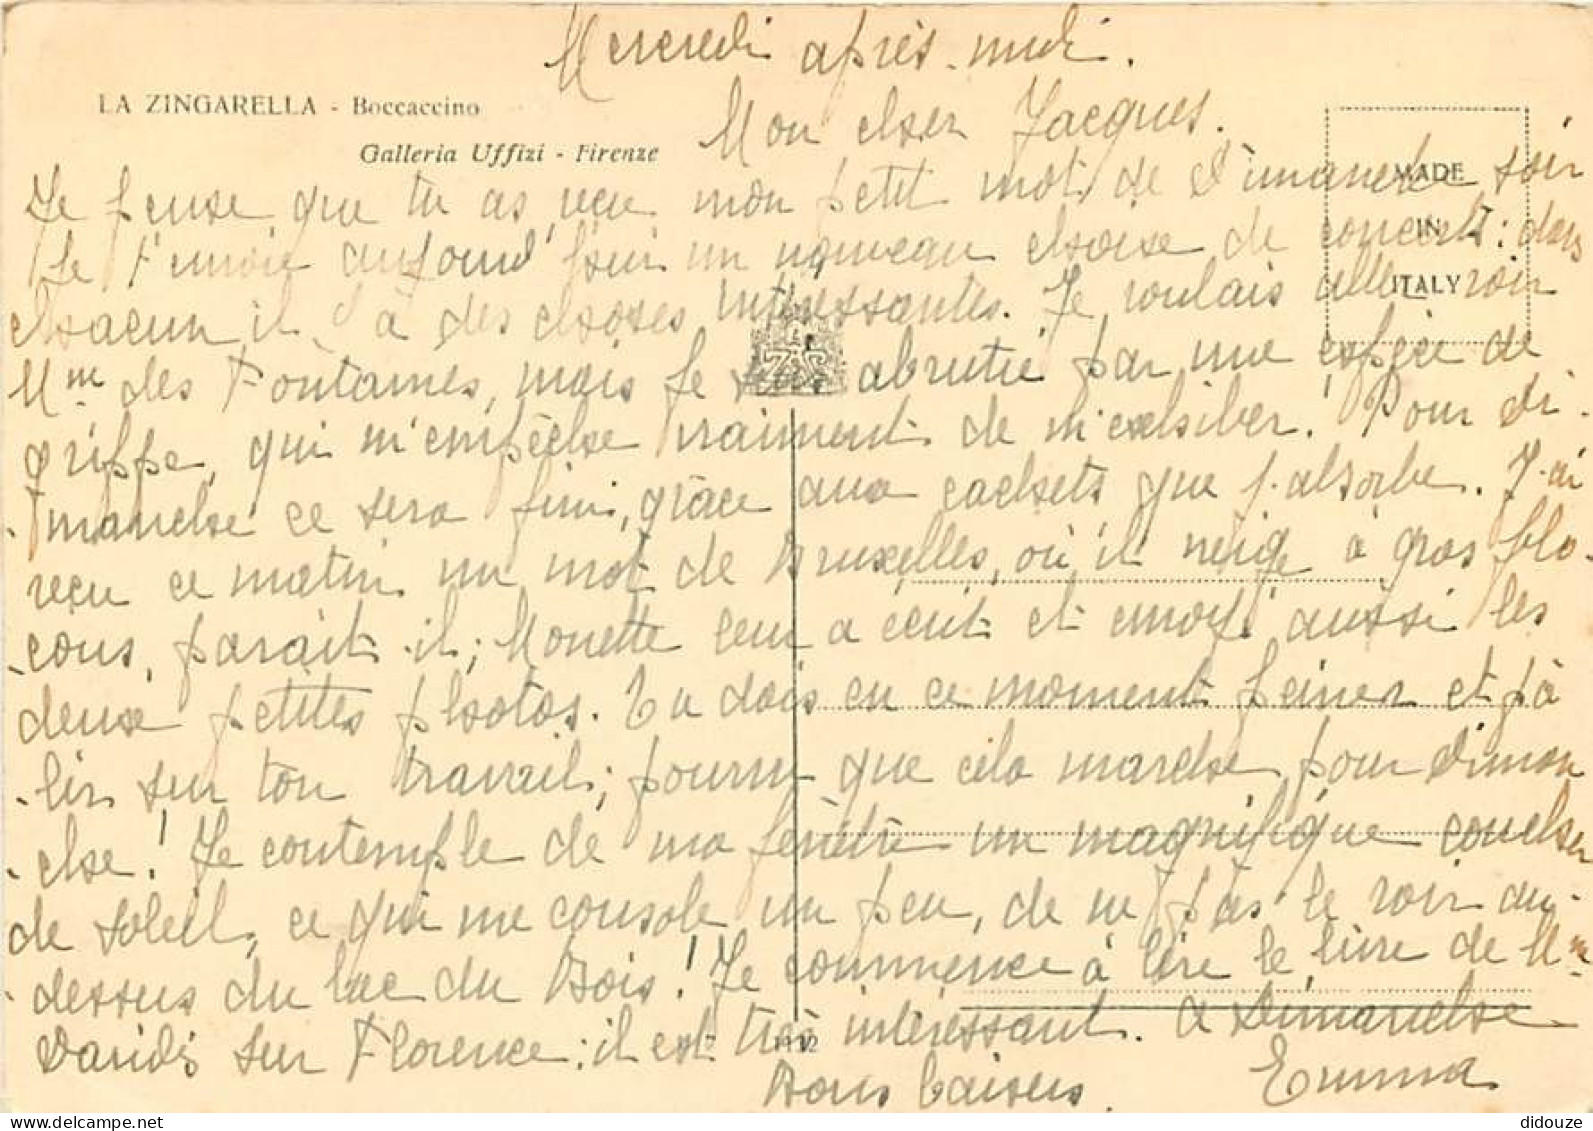 Mercredi après-midi.
LA ZINGARELLA - Boccaccino
Mon cher Jacques.
Galleria Uffizi - Firenze
MADE
IN
ITALY
Je pense que tu as reçu mon petit mot de Dimanche soir
Je t'envoie aujourd'hui un nouveau choise de concerts : dans
chacun il y a des choses intéressantes. Je voulais aller voir
Mme des Fontaines, mais je suis abrutie par une espèce de
grippe, qui m'empêche vraiment de m'exhiber. Pour di-
manche ce sera fini, grâce aux cachets que j'absorbe. J'ai
reçu ce matin un mot de Bruxelles, où il neige à gros flo-
cons, parait-il ; Monette leur a écrit et envoyé aussi les
deux petites photos. Tu dois en ce moment peiner et pâ-
lir sur ton travail ; pourvu que cela marche, pour diman
che ! Je contemple de ma fenêtre un magnifique coucher
de soleil, ce qui me console un peu, de ne pas le voir au-
dessus du lac du Bois ! Je commence à lire le livre de Mme
sur Florence : il est très intéressant. A Dimanche
1132
Bons baisers Emma
didouze